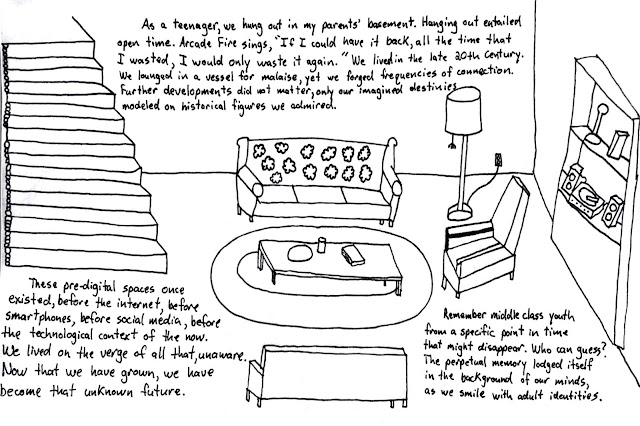 As a teenager, we hung out in my parents' basement. Hanging out entailed
open time. Arcade Fire sings, "If I could have it back, all the time that
I wasted, I would only waste it again." We lived in the late 20th Century.
We lounged in a vessel for malaise, yet we forged frequencies of connection.
Further developments did not matter, only our imagined destinies
modeled on historical figures we admired.
These pre-digital spaces once
existed, before the internet, before
smartphones, before social media, before
the technological context of the now.
We lived on the verge of all that, unaware.
Now that we have grown, we have
become that unknown future.
Remember middle class youth
from a specific point in time
that might disappear. Who can guess?
The perpetual memory lodged itself
in the background of our minds,
as we smile with adult identities.